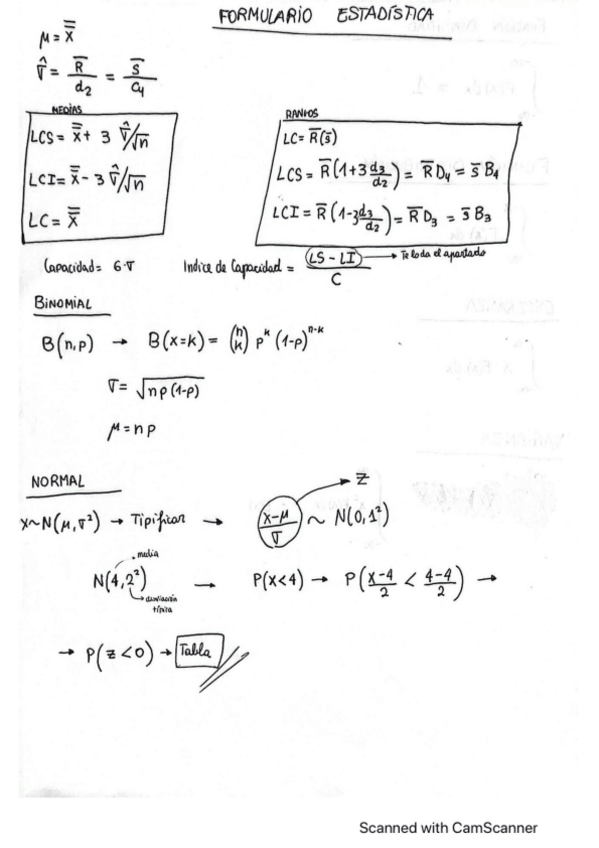 FORMULARIO ESTADÍSTICA
μ = x̿
σ̂ = R̄/d₂ = S̄/C₄
MEDIAS
LCS = x̿ + 3 σ̂/√n
LCI = x̿ - 3 σ̂/√n
LC = x̿
RANGOS
LC = R̄(s̄)
LCS = R̄(1+3 d₃/d₂) = R̄ D₄ = s̄ B₄
LCI = R̄(1-3 d₃/d₂) = R̄ D₃ = s̄ B₃
Capacidad = 6·σ Indice de Capacidad = (LS - LI)/C → Te lo da el apartado
BINOMIAL
B(n,p) → B(x=k) = (n k) pᵏ (1-p)ⁿ⁻ᵏ
σ = √np(1-p)
μ = np
NORMAL
x~N(μ,σ²) → Tipificar → (x-μ)/σ ~ N(0,1²)
→ Z
media
N(4,2²) → P(x<4) → P((x-4)/2 < (4-4)/2) →
desviación
típica
→ P(z<0) → Tabla
Scanned with CamScanner